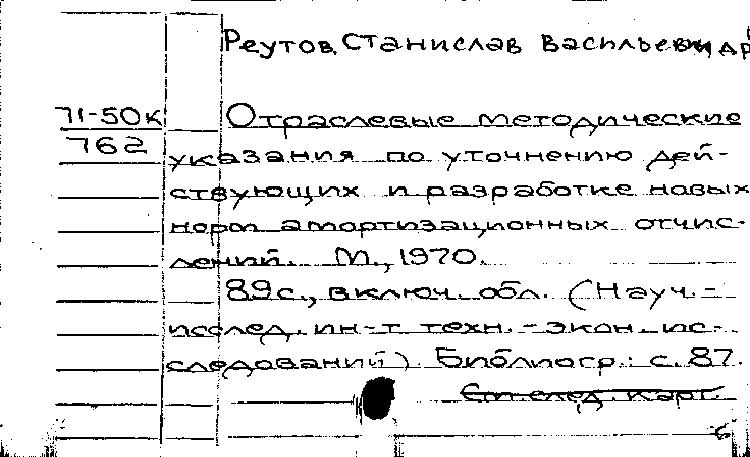 Реутов, Станислав Васильевич и др
71-50к
762
Отраслевые методические
указания по уточнению дей-
ствующих и разработке новых
норм амортизационных отчис-
лений. М., 1970.
89с., включ. обл. (Науч.-
исслед. ин-т техн.-экон. ис-
следований). Библиогр.: с. 87.
См. след. карт.